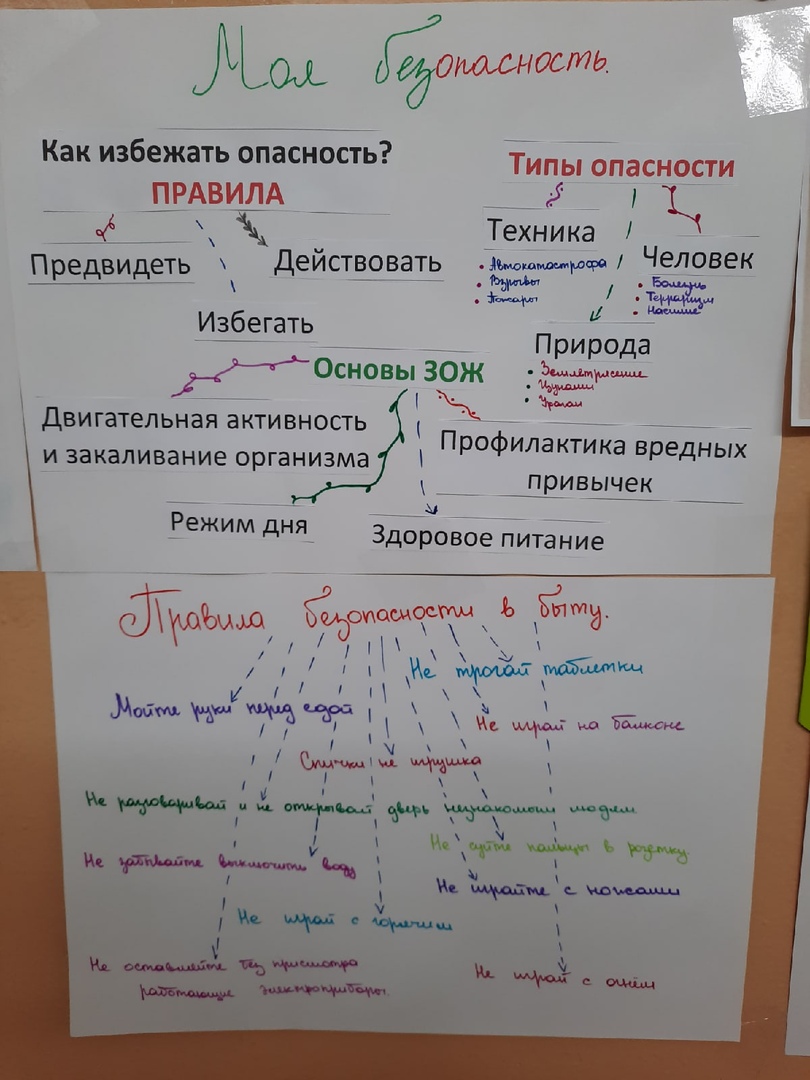 Моя безопасность.
Как избежать опасность?
ПРАВИЛА
Предвидеть
Действовать
Избегать
Типы опасности
Техника
• Автокатастрофа
• Взрывы
• Пожары
Человек
• Болезнь
• Терраризм
• Насилие
Природа
• Землетрясение
• Цунами
• Ураган
Основы ЗОЖ
Двигательная активность
и закаливание организма
Профилактика вредных
привычек
Режим дня
Здоровое питание
Правила безопасности в быту.
Не трогай таблетки
Мойте руки перед едой
Не играй на балконе
Спички не игрушка
Не разговаривай и не открывай дверь незнакомым людям
Не суйте пальцы в розетку.
Не забывайте выключить воду
Не играйте с ножами
Не играй с горячим
Не оставляйте без присмотра
работающие электроприборы.
Не играй с огнём